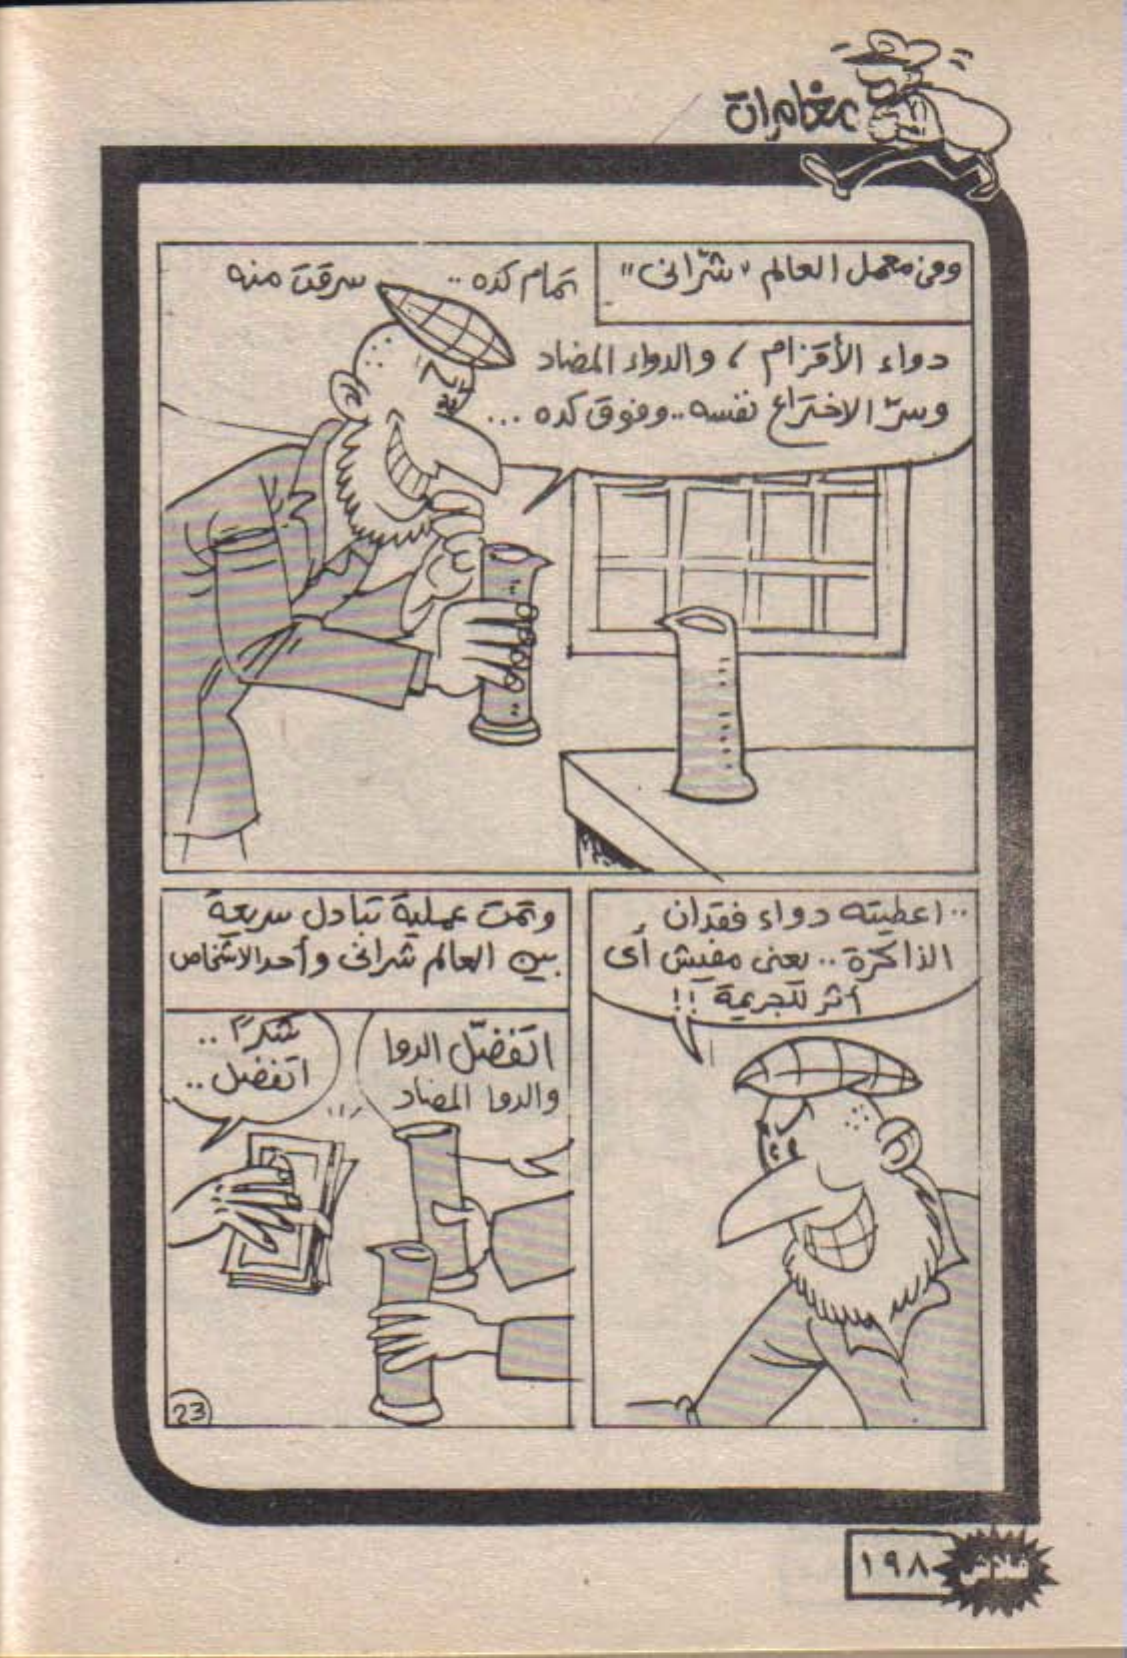 مغامرات
وفى معمل العالم "شرّانى"
تمام كده .. سرقت منه
دواء الأقزام ، والدواء المضاد
وسرّ الاختراع نفسه .. وفوق كده ...
.. اعطيته دواء فقدان
الذاكرة .. يعنى مفيش أى
أثر للجريمة !!
وتمت عملية تبادل سريعة
بين العالم شرانى وأحد الاشخاص
اتفضّل الدوا
والدوا المضاد
شكرًا ..
اتفضل ..
23
فلاش
١٩٨